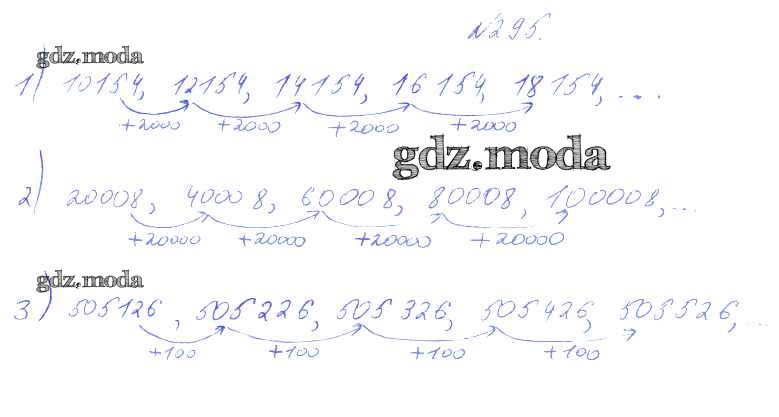 №295.
gdz.moda
1) 10154, 12154, 14154, 16154, 18154, ...
+2000 +2000 +2000 +2000
gdz.moda
2) 20008, 40008, 60008, 80008, 100008, ...
+20000 +20000 +20000 +20000
gdz.moda
3) 505126, 505226, 505326, 505426, 505526, ...
+100 +100 +100 +100